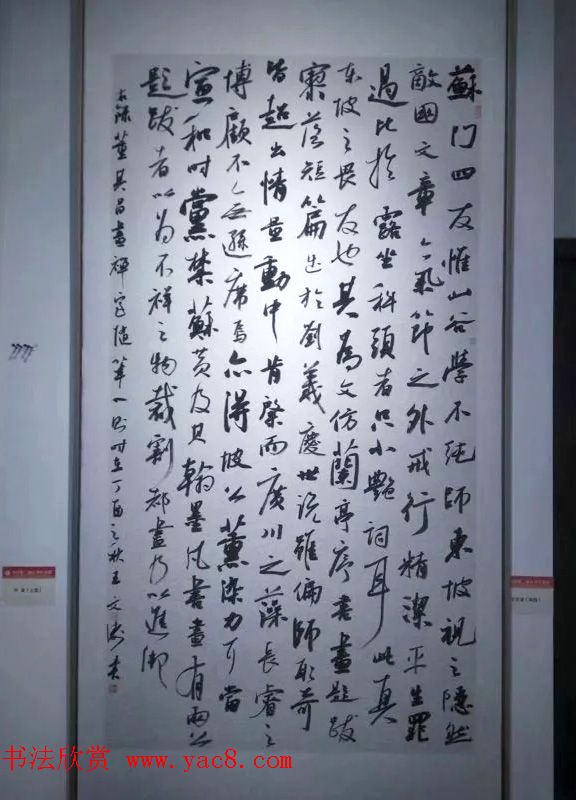 蘇门四友惟山谷學不純師東坡視之隱然
敵國文章氣節之外戒行精潔平生罪
過比於露坐科頭者只小艷詞耳此真
東坡之畏友也其為文仿蘭亭序書畫題跋
寥落短篇出於劉義慶世說雖偏師取奇
皆超出情量動中肯綮而廣川之藻長睿之
博顧不無遜席焉亦得坡公薰染力耳當
宣和时黨禁蘇黃及其翰墨凡書畫有兩公
題跋者以為不祥之物裁割都盡乃以進御
右録董其昌畫禅室随筆一则时在丁酉之秋王文
书法欣赏 www.yac8.com